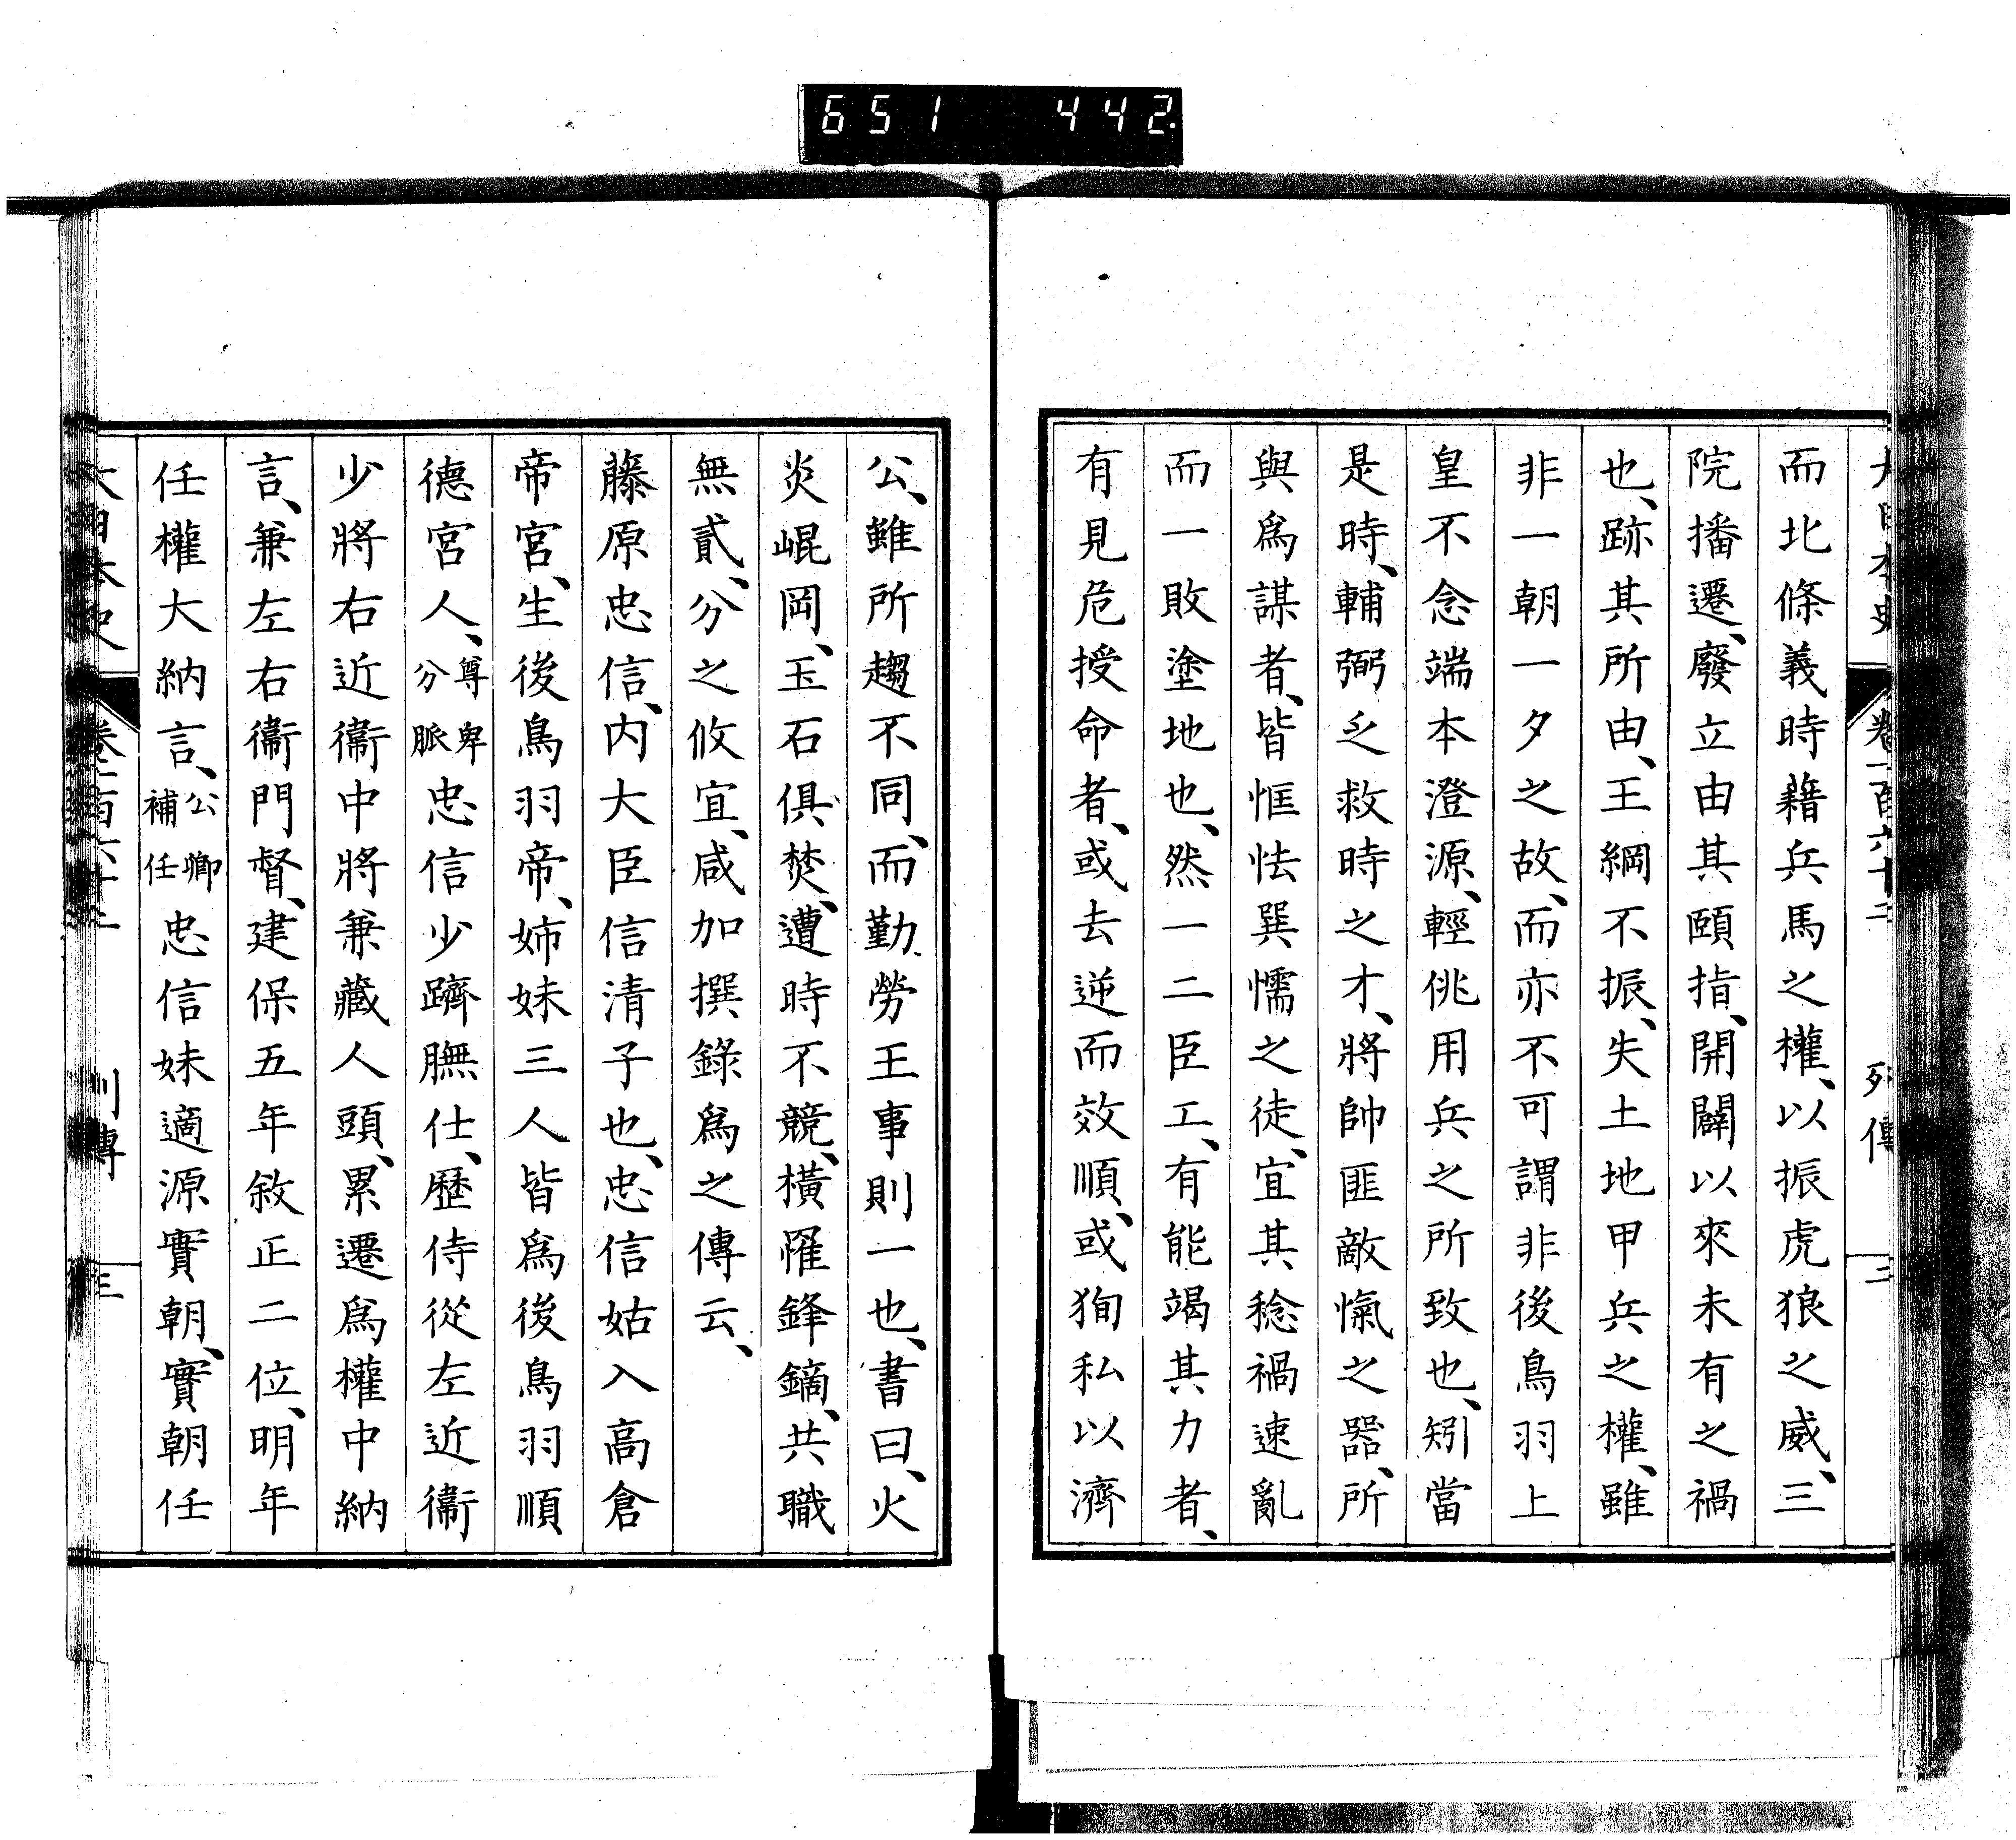 651 442
大日本史 卷一百六十二 列傳 三
而北條義時藉兵馬之權、以振虎狼之威、三
院播遷、廢立由其頤指、開闢以來未有之禍
也、跡其所由、王綱不振、失土地甲兵之權、雖
非一朝一夕之故、而亦不可謂非後鳥羽上
皇不念端本澄源、輕佻用兵之所致也、矧當
是時、輔弼乏救時之才、將帥匪敵愾之器、所
與爲謀者、皆恇怯巽懦之徒、宜其稔禍速亂
而一敗塗地也、然一二臣工、有能竭其力者、
有見危授命者、或去逆而效順、或狥私以濟
公、雖所趨不同、而勤勞王事則一也、書曰、火
炎崐岡、玉石俱焚、遭時不競、橫罹鋒鏑、共職
無貳、分之攸宜、咸加撰錄爲之傳云、
藤原忠信、内大臣信清子也、忠信姑入高倉
帝宮、生後鳥羽帝、姉妹三人皆爲後鳥羽順
德宮人、尊卑分脈忠信少躋膴仕、歷侍從左近衞
少將右近衞中將兼藏人頭、累遷爲權中納
言、兼左右衞門督、建保五年敘正二位、明年
任權大納言、公卿補任忠信妹適源實朝、實朝任
大日本史 卷一百六十二 列傳 三